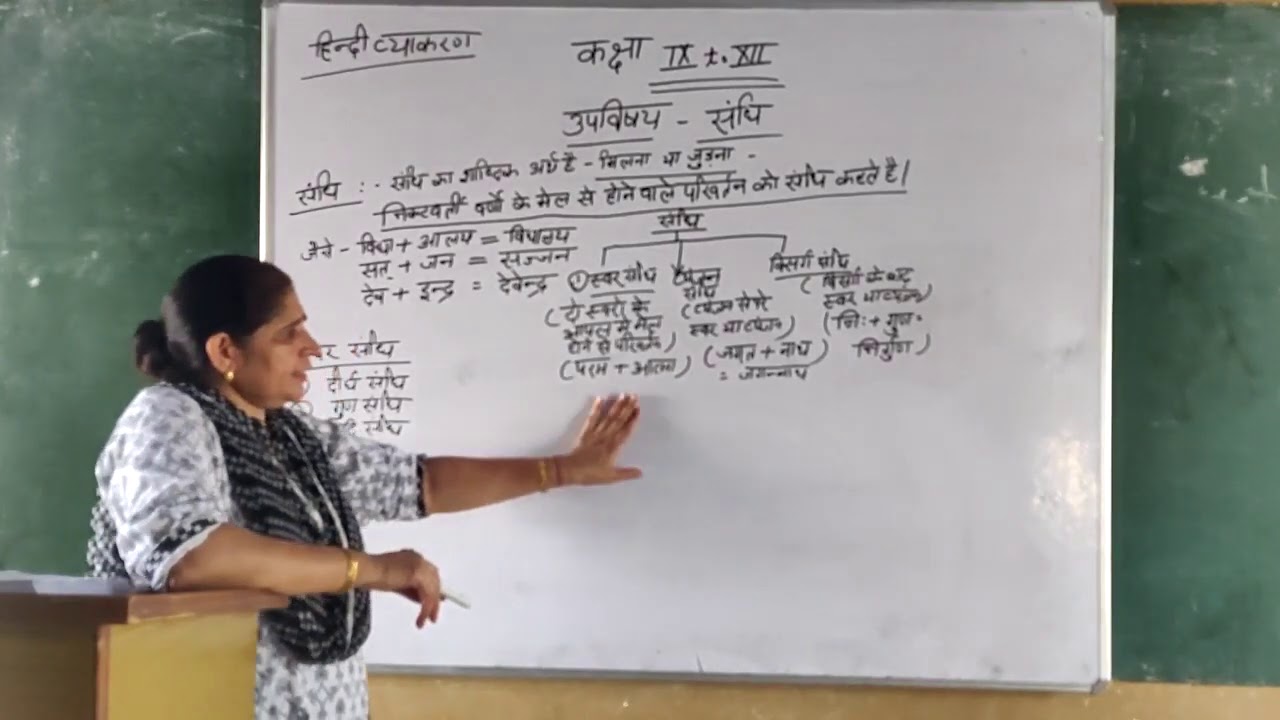 हिन्दी व्याकरण
कक्षा IX to XII
उपविषय - संधि
संधि :- संधि का शाब्दिक अर्थ है - मिलना या जुड़ना -
निकटवर्ती वर्णों के मेल से होने वाले परिवर्तन को संधि कहते है।
जैसे - विद्या + आलय = विद्यालय
सत् + जन = सज्जन
देव + इन्द्र = देवेन्द्र
संधि
① स्वर संधि
(दो स्वरो के
आपस मे मेल
होने से परिवर्तन)
(परम + आत्मा)
व्यंजन
संधि
(व्यंजन से परे
स्वर या व्यंजन)
(जगत + नाथ)
= जगन्नाथ
विसर्ग संधि
(विसर्ग के बाद
स्वर या व्यंजन)
(निः + गुण =
निर्गुण)
संधि
दीर्घ संधि
गुण संधि
संधि